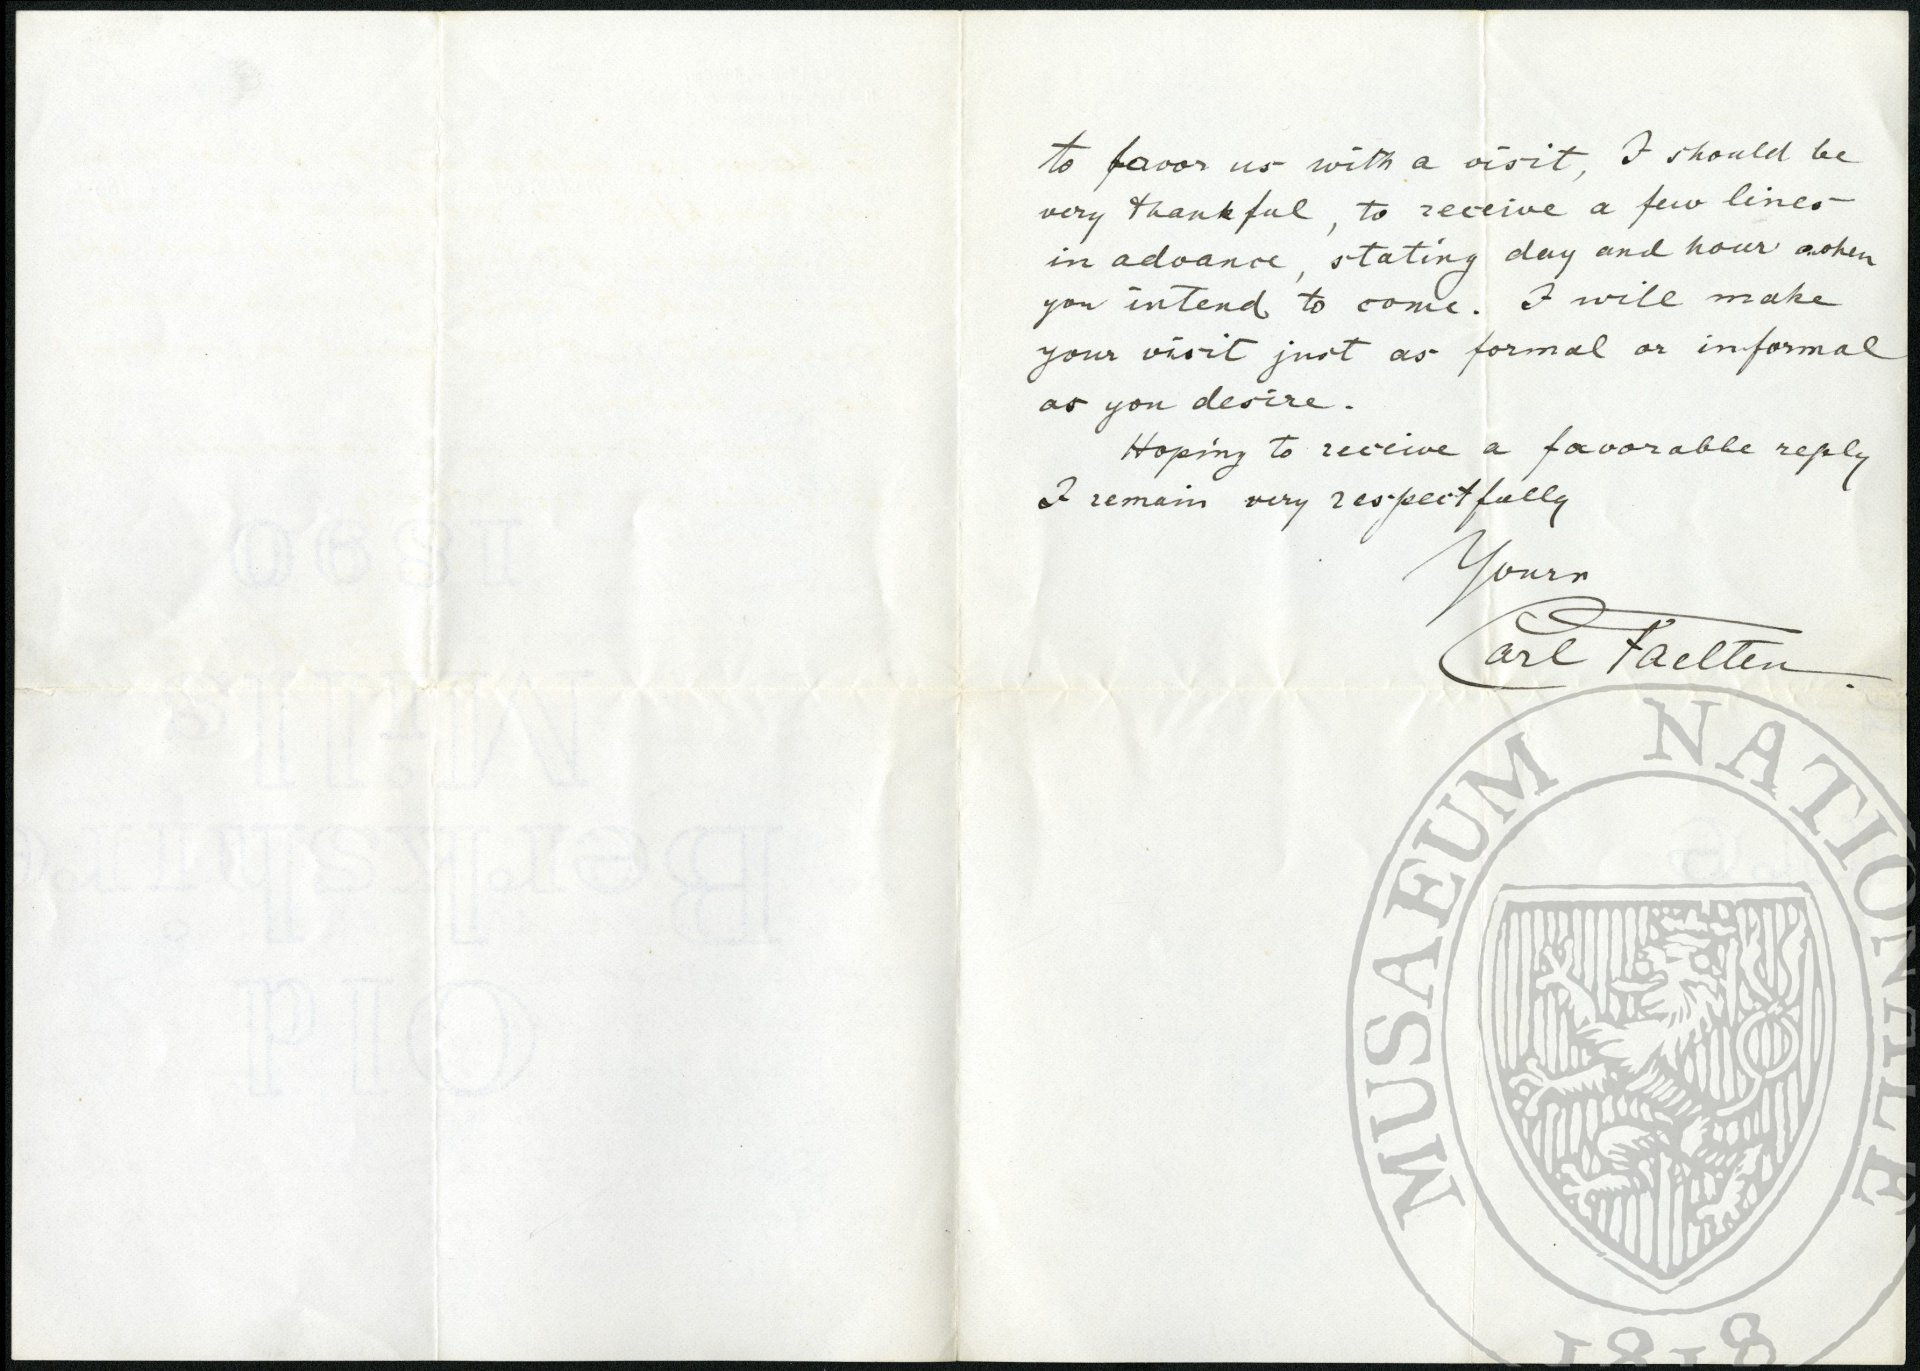 to favor us with a visit, I should be
very thankful, to receive a few lines
in advance, stating day and hour when
you intend to come. I will make
your visit just as formal or informal
as you desire.
Hoping to receive a favorable reply
I remain very respectfully
Yours
Carl Faelten.
1890
Mills
Berkshire
Old
MUSAEUM NATIONALE
1818